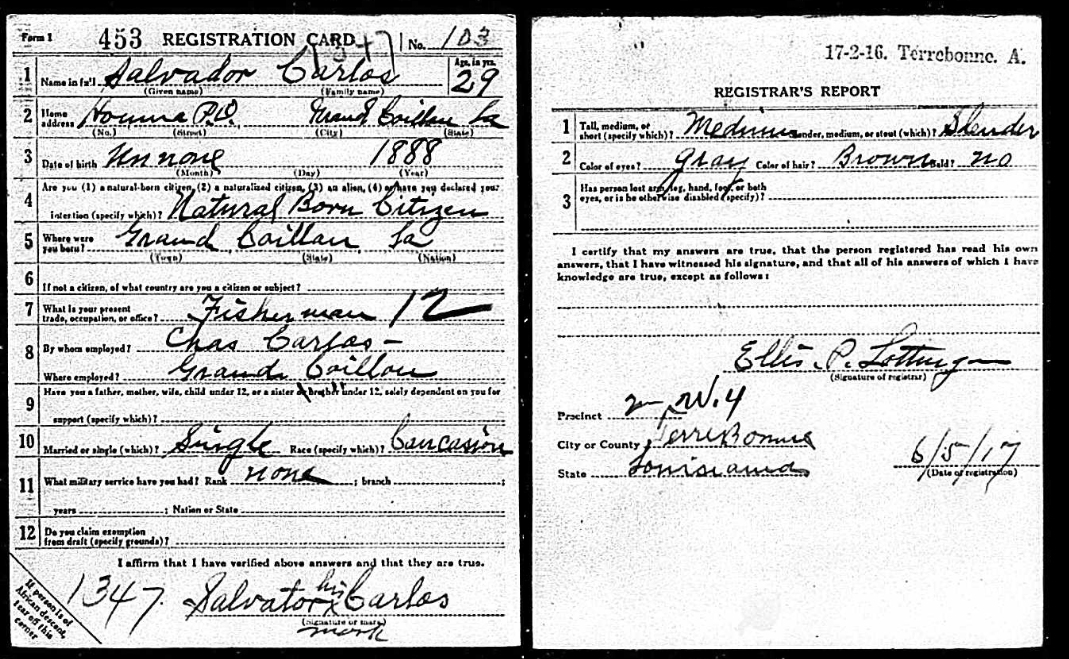 Form 1 453 REGISTRATION CARD 1347 No. 103
1 Name in full Salvador Carlos Age, in yrs. 29
(Given name) (Family name)
2 Home address Houma P.O. Grand Caillou La
(No.) (Street) (City) (State)
3 Date of birth Unnone 1888
(Month) (Day) (Year)
4 Are you (1) a natural-born citizen, (2) a naturalized citizen, (3) an alien, (4) or have you declared your
intention (specify which)? Natural Born Citizen
5 Where were you born? Grand Caillou La
(Town) (State) (Nation)
6 If not a citizen, of what country are you a citizen or subject?
7 What is your present trade, occupation, or office? Fisherman 12
8 By whom employed? Chas Carlos –
Where employed? Grand Caillou
9 Have you a father, mother, wife, child under 12, or a sister or brother under 12, solely dependent on you for
support (specify which)?
10 Married or single (which)? Single Race (specify which)? Caucasion
11 What military service have you had? Rank none ; branch ;
years ; Nation or State
12 Do you claim exemption
from draft (specify grounds)?
I affirm that I have verified above answers and that they are true.
1347 Salvator his x Carlos
(Signature or mark)
mark
If person is of
African descent,
tear off this
corner
17-2-16. Terrebonne. A.
REGISTRAR'S REPORT
1 Tall, medium, or short (specify which)? Medium Slender, medium, or stout (which)? Slender
2 Color of eyes? Gray Color of hair? Brown Bald? no
3 Has person lost arm, leg, hand, foot, or both
eyes, or is he otherwise disabled (specify)?
I certify that my answers are true, that the person registered has read his own
answers, that I have witnessed his signature, and that all of his answers of which I have
knowledge are true, except as follows:
Ellis P. Lottinger
(Signature of registrar)
Precinct 2 W. 4
City or County TerreBonne
State Louisiana 6/5/17
(Date of registration)